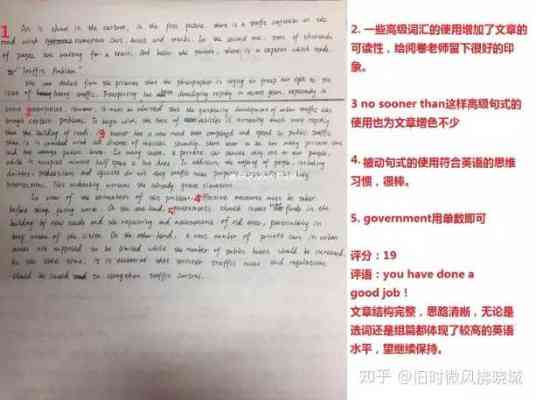 1 As is shown in the cartoon, in the first picture, there is a traffic on the
road with numerous cars, buses and trucks. In the second one, tens of thousands
of people are waiting for a train. And below the picture, there is a caption which reads
"Traffic Problem"
We can deduce from the pictures that the photographer is trying to our eyes to the
issue of traffic. has been developing rapidly in recent years, especially in
some 2 However, it must be admitted that the developing of urban traffic has
brought certain problems. To begin with, the of vehicles is increasing much more rapidly
than the building of roads. 3 sooner has a new road been completed and opened to public traffic
than it is crowded with all of vehicles. there to be too many private cars
and not enough public buses. In many cases, a private car carries only one or two people,
while it occupies almost half space a bus does. In addition, the of people, including
drivers, pedestrians and cyclists do not obey traffic rules properly, especially at busy
intersections. This undoubtedly the already grave situation.
In view of the of this problem, 4 effective measures must be taken
before things getting worse. On the one hand, 5 governments should the funds in the
building of new roads and the repairing and of old ones, particularly in
busy areas of the cities. On the other hand, a number of private cars in urban
areas are supposed to be limited while the number of public buses should be increased.
At the same time, it is that traffic rules and regulations
should be to strengthen traffic control.
2. 一些高级词汇的使用增加了文章的
可读性，给阅卷老师留下很好的印
象。
3 no sooner than这样高级句式的
使用也为文章增色不少
4. 被动句式的使用符合英语的思维
习惯，很棒。
5. government用单数即可
评分：19
评语：you have done a
good job！
文章结构完整，思路清晰，无论是
选词还是组篇都体现了较高的英语
水平，望继续保持。
知乎 @旧时微风拂晓城